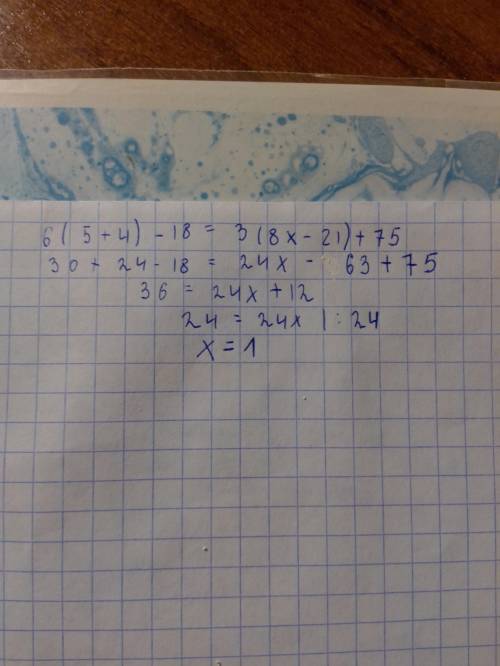 6( 5 + 4) - 18 = 3(8x - 21) + 75
30 + 24 - 18 = 24x - 63 + 75
36 = 24x + 12
24 = 24x | : 24
x = 1